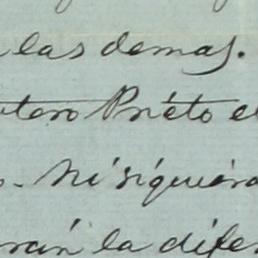 a las demas.
otero Prieto el
o. Ni siquiera
rán la difer